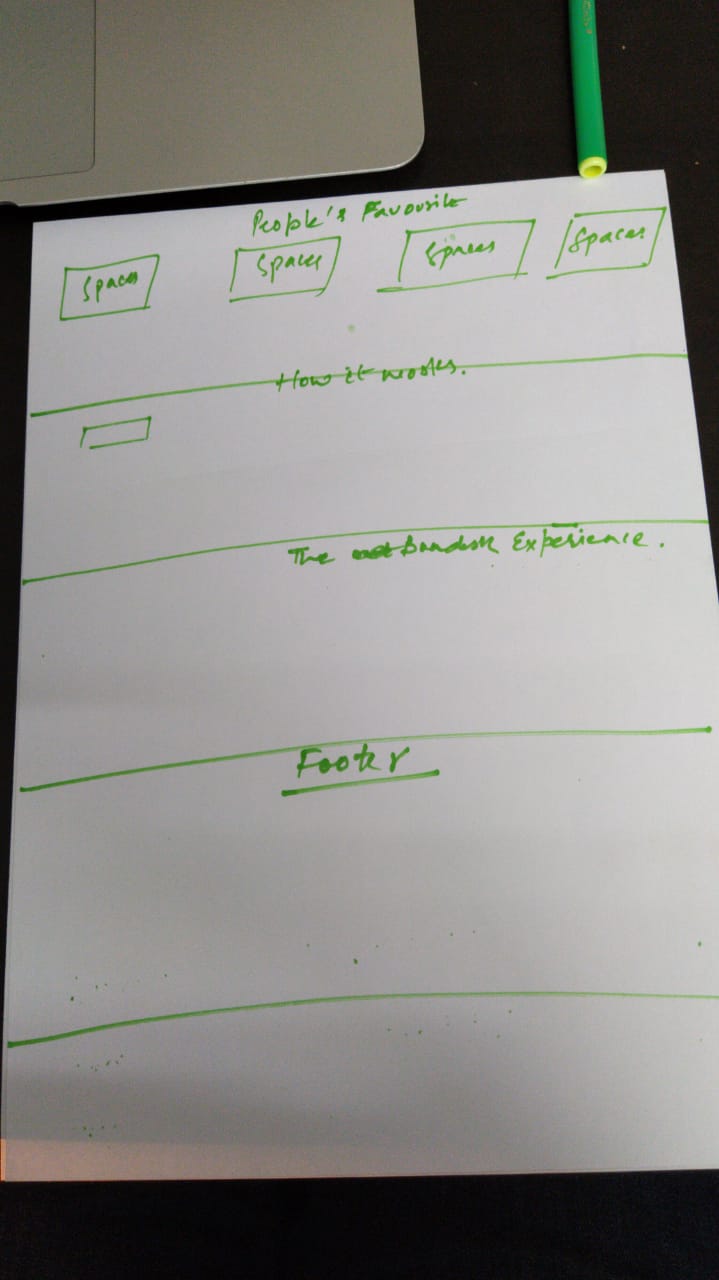 People's Favourite
Spaces Spaces Spaces Spaces
How it works.
The Experience.
Footer